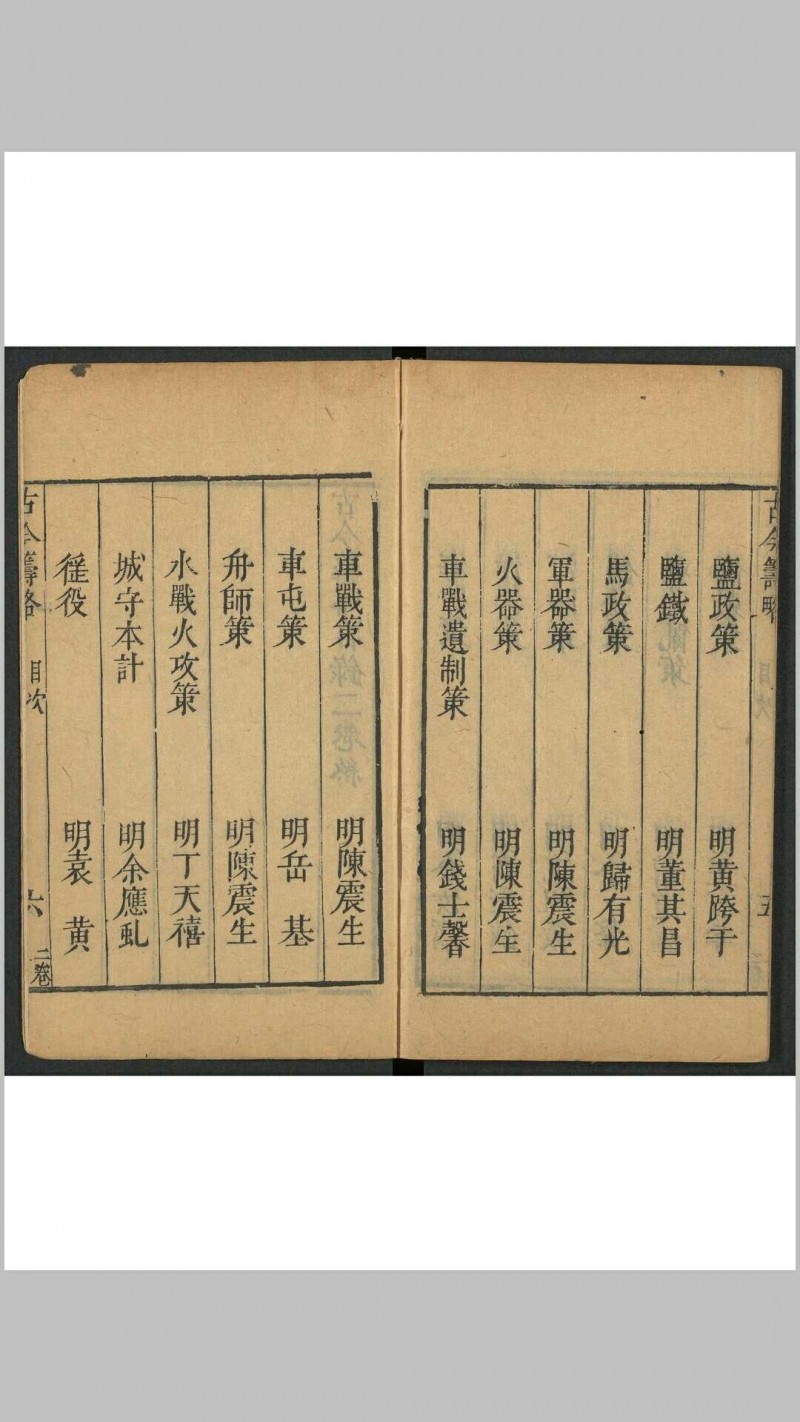 古今籌略 目次 五
鹽政策 明黃跨千
鹽鐵 明董其昌
馬政策 明歸有光
軍器策 明陳震生
火器策 明陳震生
車戰遺制策 明錢士馨
車戰策 明陳震生
車屯策 明岳 基
舟師策 明陳震生
水戰火攻策 明丁天禧
城守本計 明余應虬
徭役 明袁 黃
古今籌略 目次 六 二卷